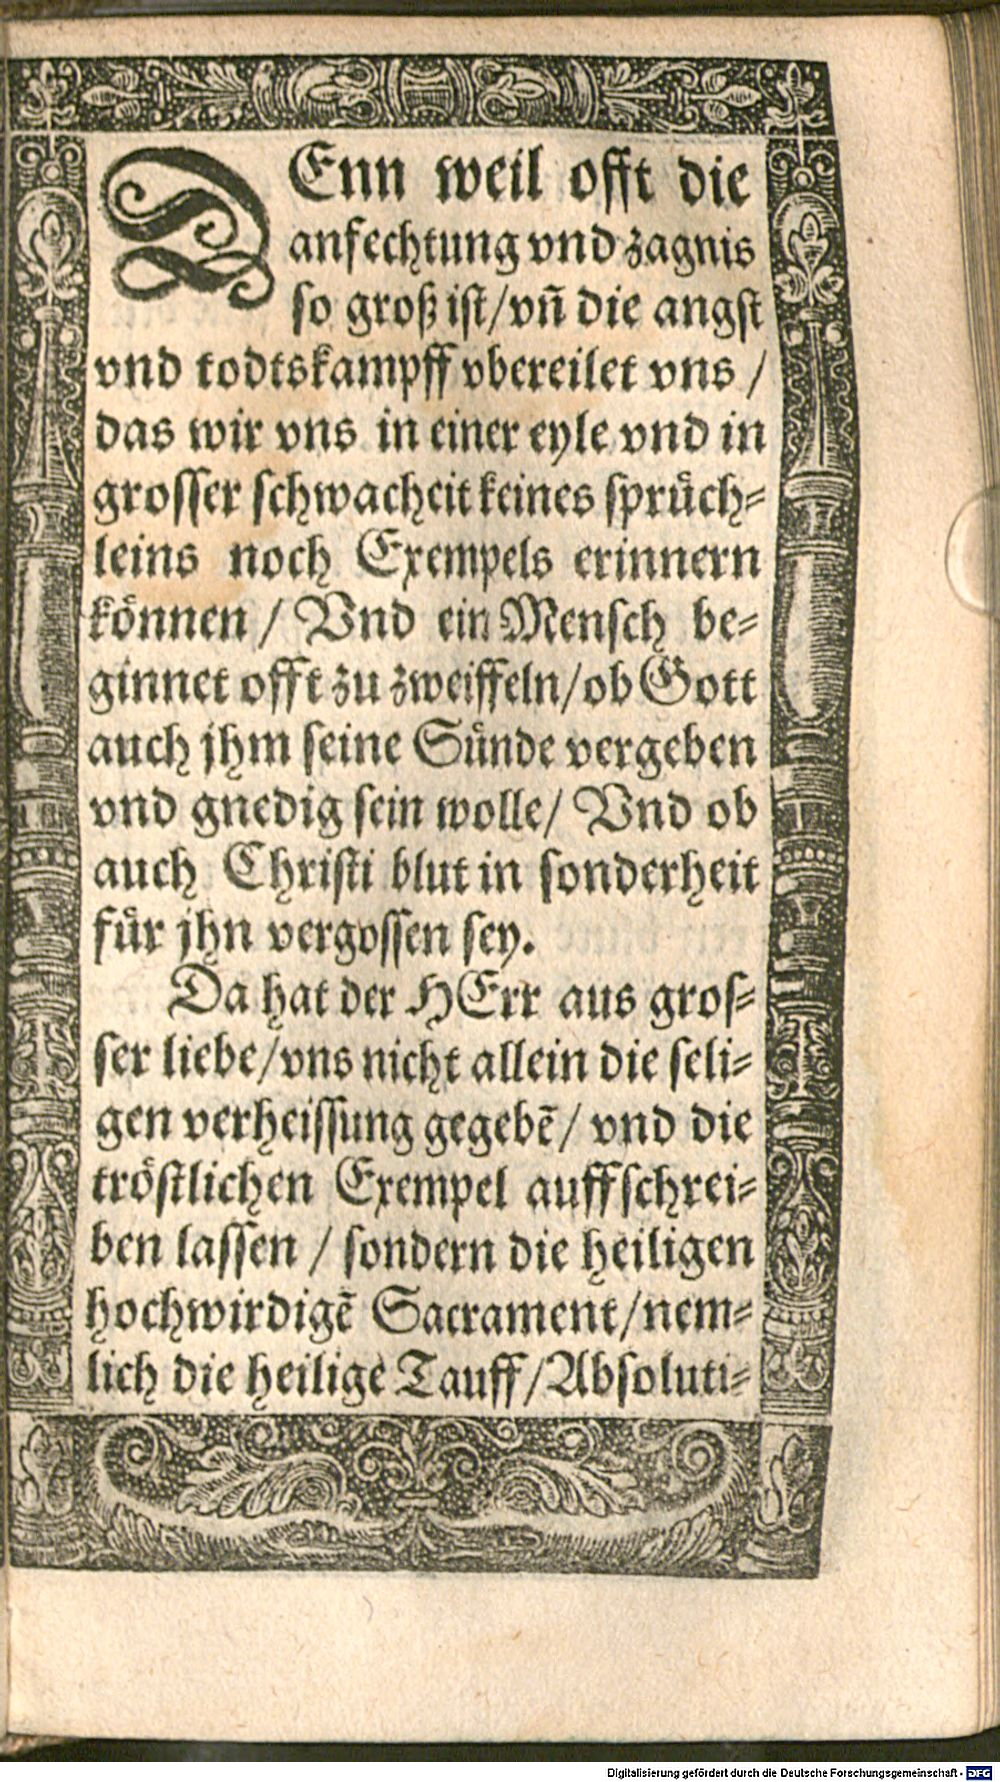 DEnn weil offt die
anfechtung vnd zagnis
so groß ist/vñ die angst
vnd todtskampff vbereilet vns /
das wir vns in einer eyle vnd in
grosser schwacheit keines sprüch-
leins noch Exempels erinnern
können / Vnd ein Mensch be-
ginnet offt zu zweiffeln/ob Gott
auch jhm seine Sünde vergeben
vnd gnedig sein wolle/ Vnd ob
auch Christi blut in sonderheit
für jhn vergossen sey.
Da hat der HErr aus gros-
ser liebe/vns nicht allein die seli-
gen verheissung gegebẽ/ vnd die
tröstlichen Exempel auffschrei-
ben lassen / sondern die heiligen
hochwirdigẽ Sacrament/nem-
lich die heilige Tauff/Absoluti-
Digitalisierung gefördert durch die Deutsche Forschungsgemeinschaft - DFG